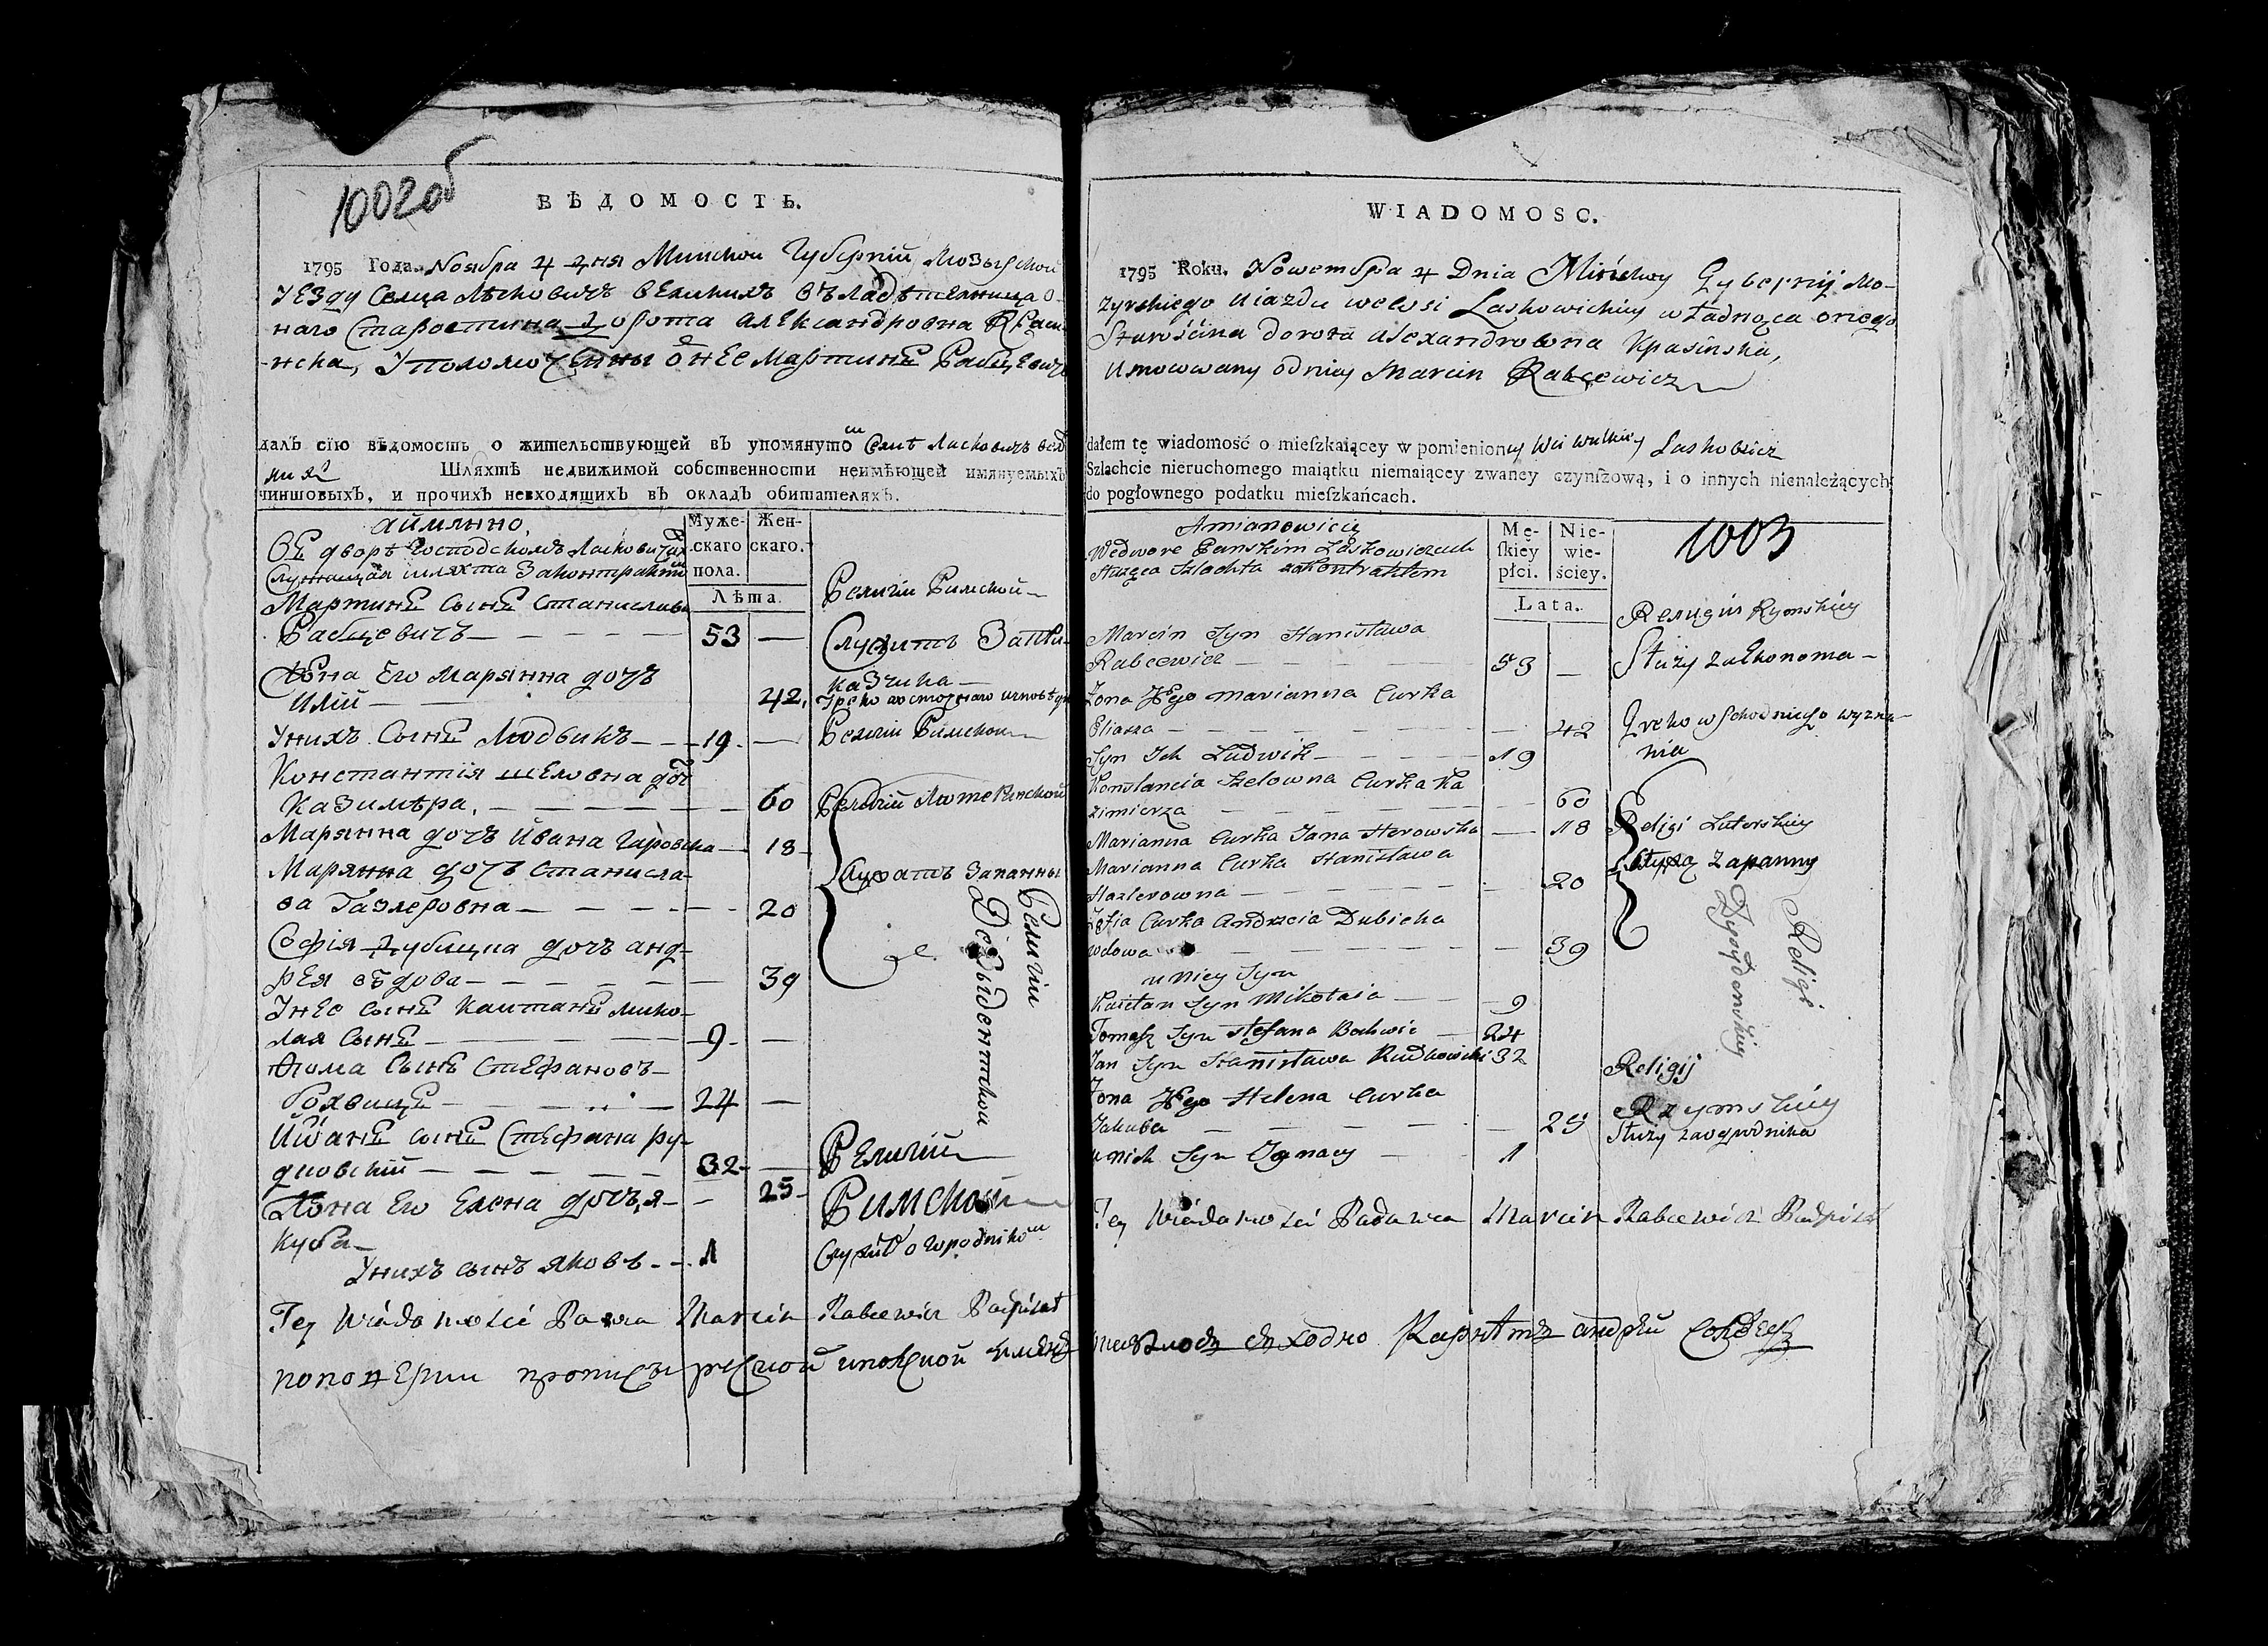 1002об
ВѢДОМОСТЬ.
1795 Года. Ноября 4 дня Минской Губерній Мозырской
уезду Селца Лѣсковичъ великихъ въ ладѣтелница о-
наго Старостина Дорота Александровна Краси-
-нска, Уполомоченны о нее Мартинъ Рабцевичъ
далъ сїю вѣдомость о жительствующей въ упомянуто Селѣ Ласковичъ
Шляхтѣ недвижимой собственности неимѣющей имянуемыхъ
чиншовыхъ, и прочихъ невходящихъ въ окладъ обитателяхъ.
аймянно
Въ дворѣ Господскомъ Ласковичах
Служащая шляхта Законтрактом
Муже-скаго пола. Жен-скаго.
Лѣта.
Мартинъ сынъ Станислава
Рабцевичъ — 53 —
Религіи Римской
Служитъ За Прика-
Жона Его Марянна дочъ
казчика
Илiи — 42.
Греко восточнаго исповѣда
Унихъ Сынъ Людвикъ — 19 —
Религіи Римской
Константія шеловна доч
Казимѣра. — 60
Религій Лютеранской
Марянна дочъ Ивана Гаровска — 18
Марянна дочъ Станисла-
Служатъ Запанны
ва Газлеровна — 20
София Дубицка дочъ анд-
рея вдова — 39
Религіи
Дезыдентской
Унее сынъ Каитанъ Мико-
лая Сынъ — 9 —
Фома Сынъ Стефановъ
Бохвицъ — 24 —
Иванъ сынъ Стефана Ру-
дковскiй — 32 —
Религій
Жона Его Елена дочъ, я- — 25
Римской
куба
Служит огородніком
Унихъ сынъ яковъ — 1
Tey Wiadomości Padawca Marcin Rabcewicz Podpisał
WIADOMOSC.
1795 Roku. Nowembra 4 Dnia Mińskoy Gybernij Mo-
zyrskiego Uiazdu we Wsi Laskowichiey władnąca onego
Starościna dorota alexandrowna Krasińska,
Umocowany od niey Marcin Rabcewicz
dałem tę wiadomość o mieſzkaiącey w pomienioney Wsi wielkiey Laskowicz
Szlachcie nieruchomego maiątku niemaiącey zwaney czynſzową, i o innych nienależących
do pogłownego podatku mieſzkańcach.
Amianowicie
We dworze Panskim Laskowiczach
Służąca Szlachta zakontraktem
Mę-ſkiey płci. Nie-wie-ściey.
Lata.
1003
Marcin Syn Stanisława
Rabcewicz — 53 —
Religii Rzymskiey
Służy za Ekonoma
Żona Jego Marianna Curka
Eliasza — 42
Greko wschodniego wyzna-
nia
Syn Ich Ludwik — 19
Konstancia Szelowna Curka Ka
zimierza — 60
Marianna Curka Jana Herowska — 18
Religi Luterskiey
Marianna Curka Stanisława
Służą zapanny
Hazlerowna — 20
Zofia Curka Andrzeia Dubicka
wdowa — 39
Religi
Dyzydenskiey
u niey Syn
Kaietan Syn Mikołaia — 9
Tomasz Syn Stefana Bochwic — 24
Jan Syn Stanisława Rudkowski 32
Religij
Żona Jego Helena Curka
Jakuba — 25
Rzymskiey
Służy zaogrodnika
u nich Syn Ignacy — 1
Tey Wiadomości Padawca Marcin Rabcewicz Podpisał